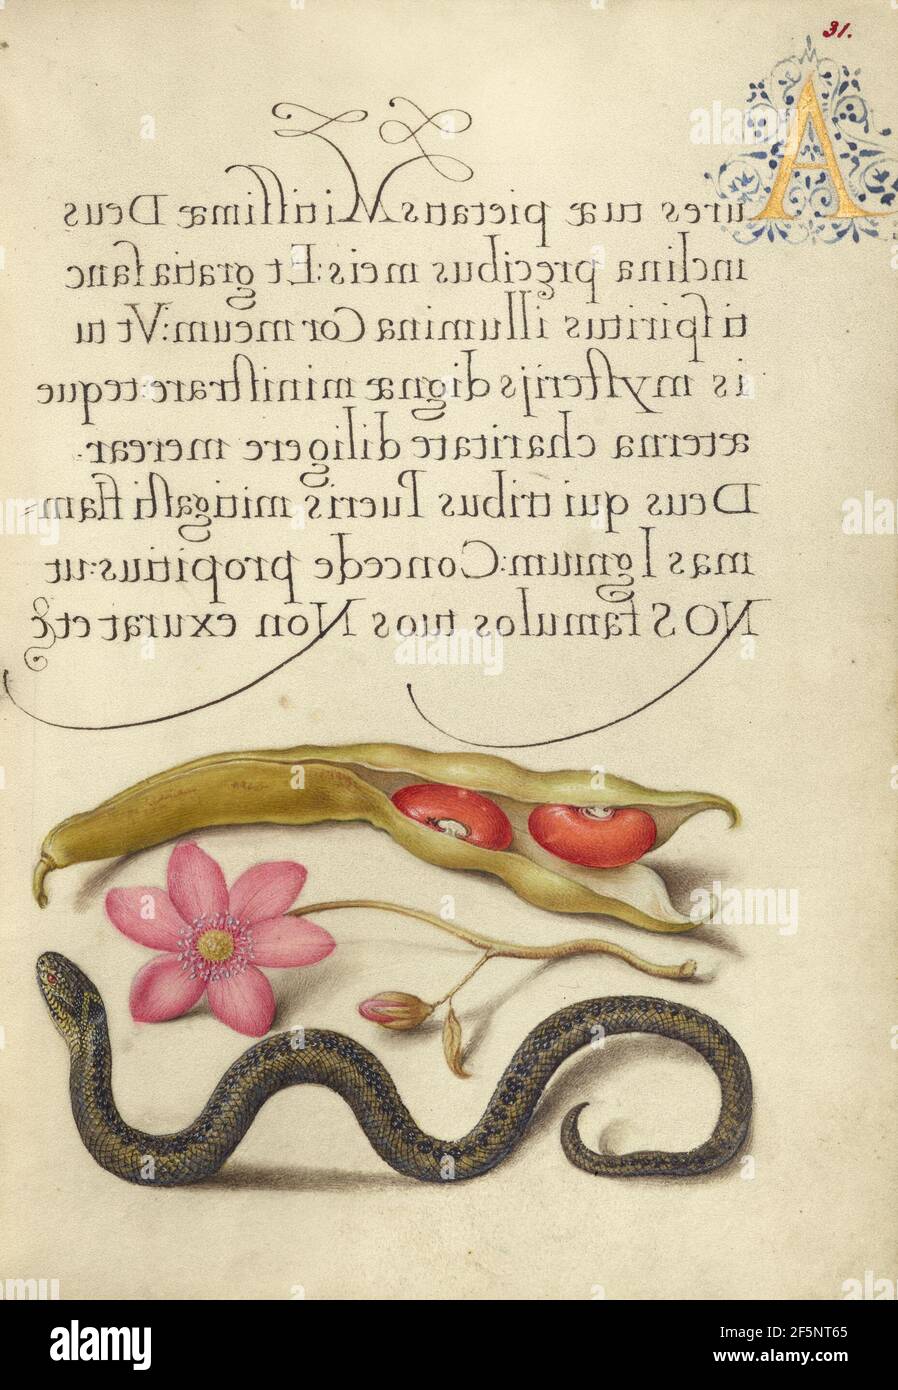 31.
Aures tuæ pietatis Mitiſſimæ Deus
inclina pręcibus meis: Et gratia ſanc
ti ſpiritus illumina Cor meum: Vt tu
is myſterijs dignæ miniſtrare: teque
æterna charitate diligere merear.
Deus qui tribus Pueris mitigaſti flam=
mas Ignium: Concede propitius: ut
NOS famulos tuos Non exurat etc
alamy
Image ID: 2F5NT65
www.alamy.com